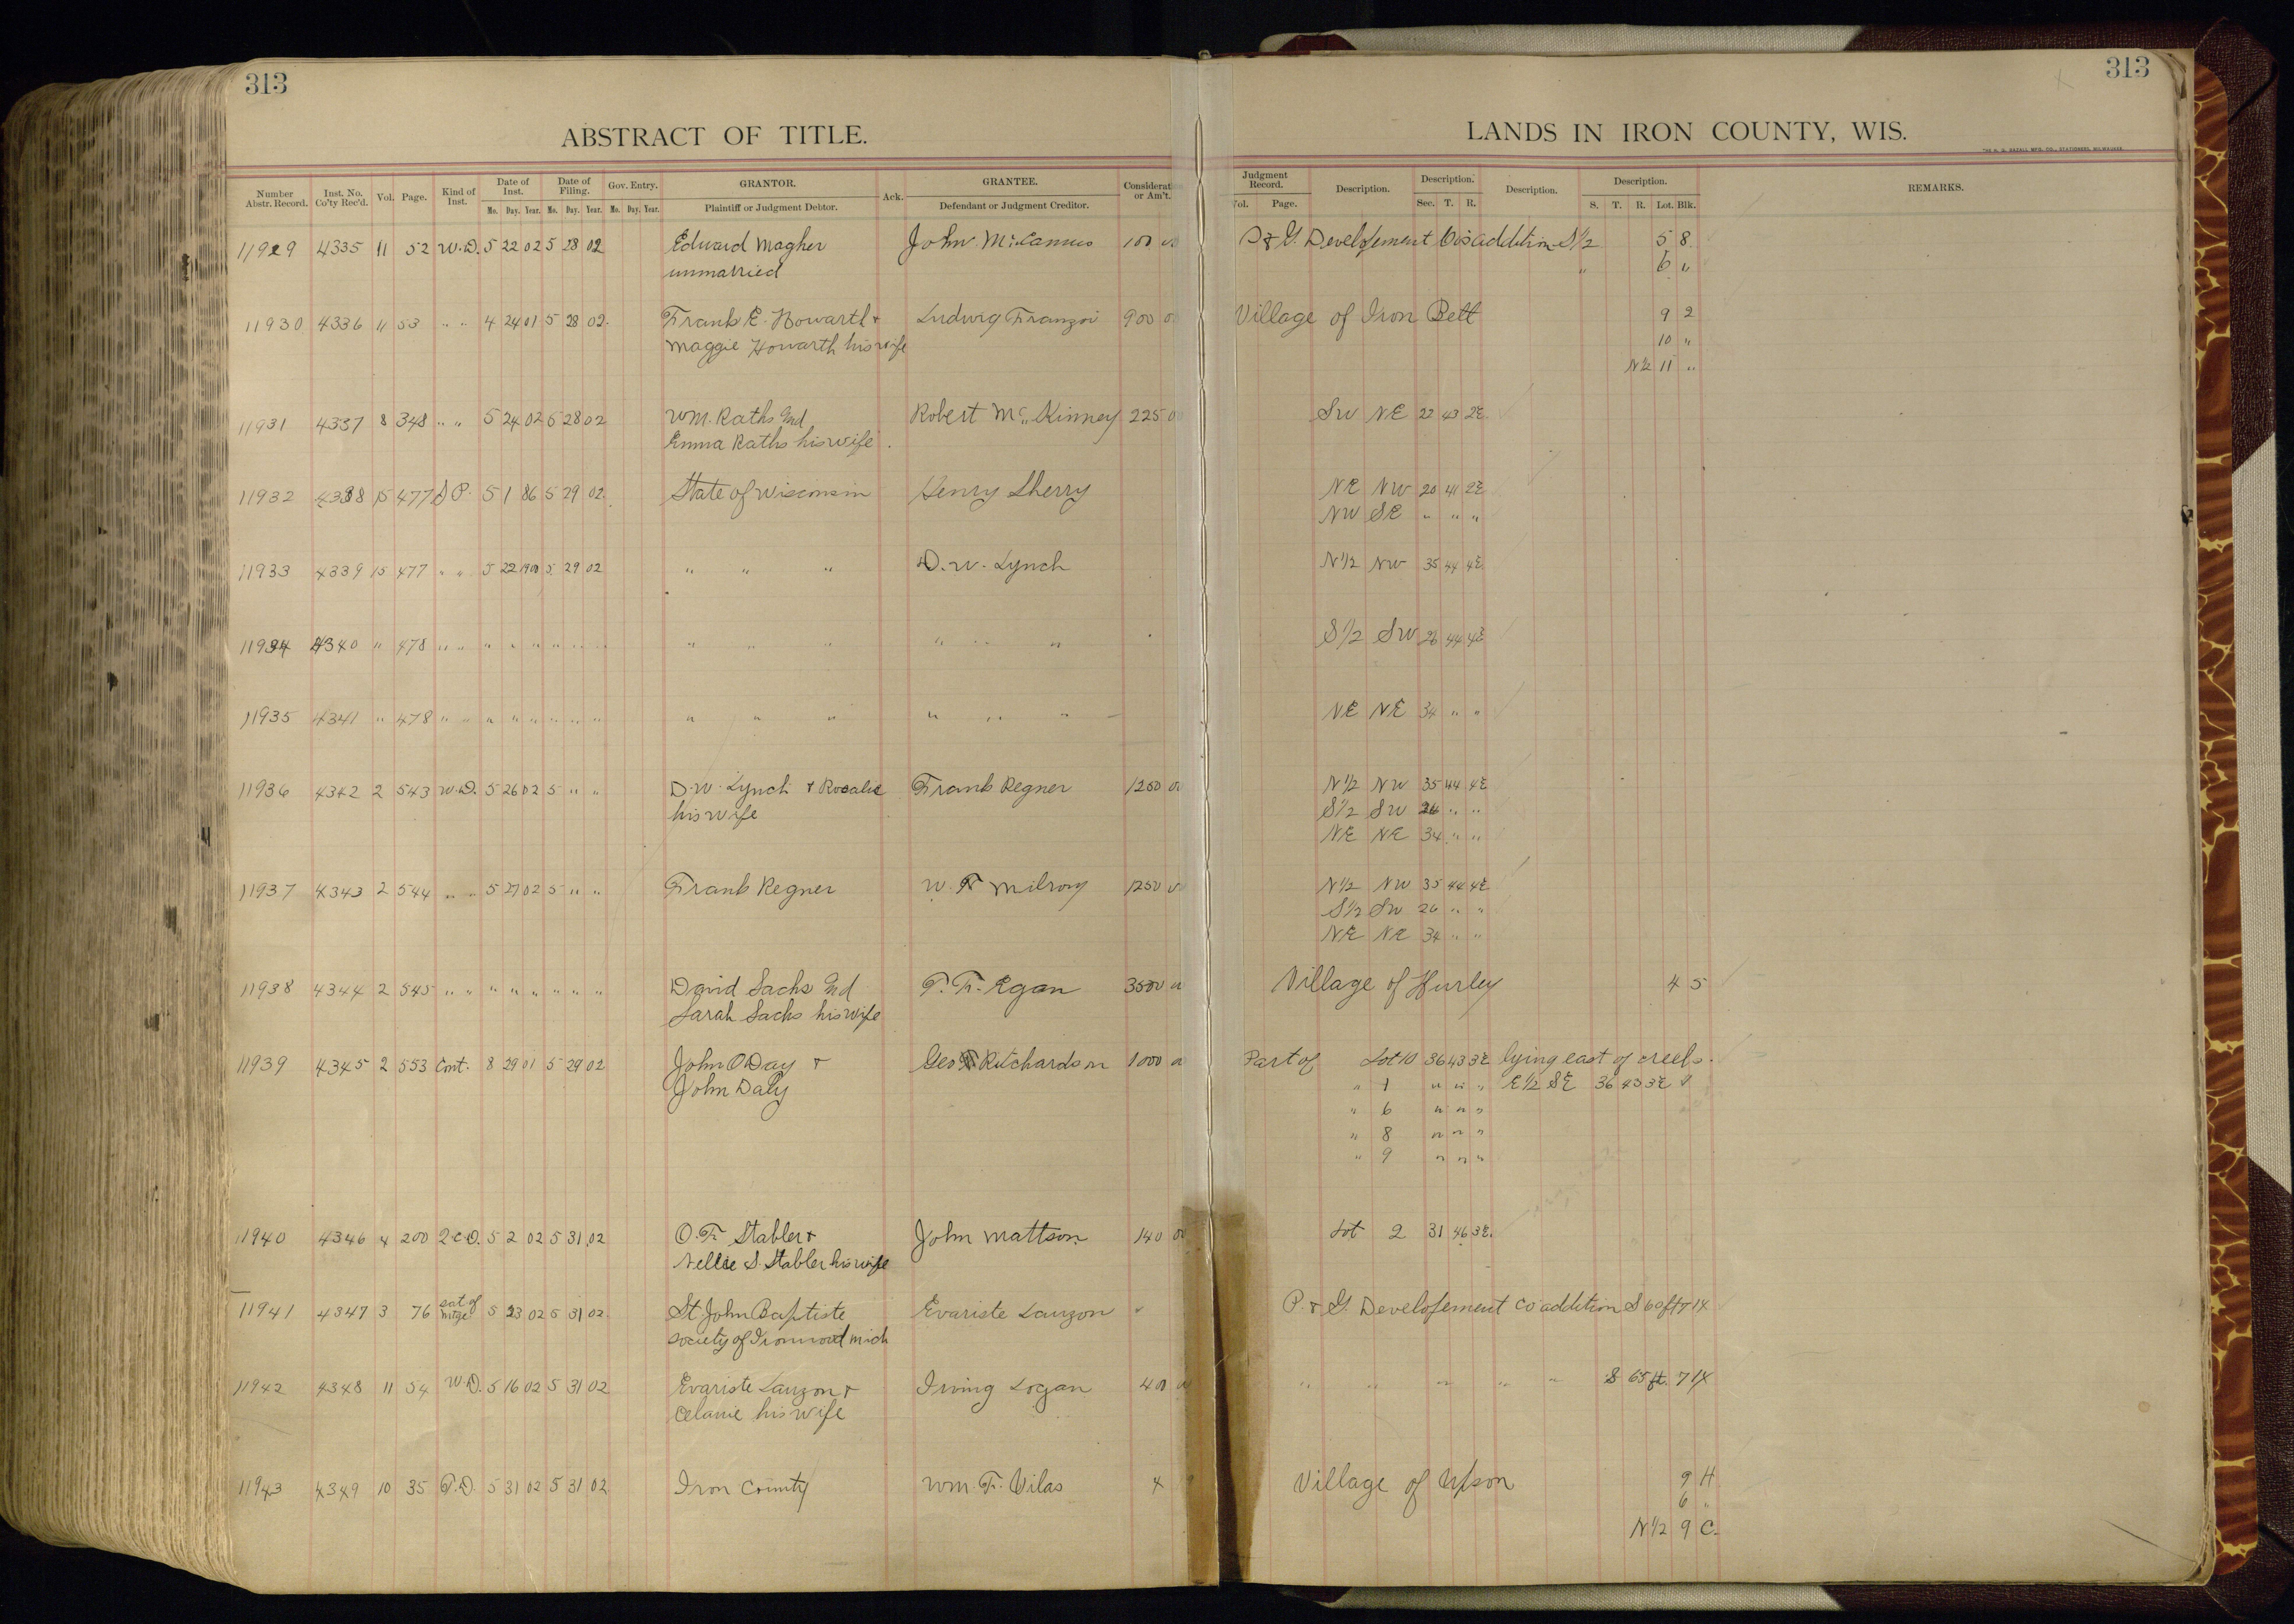 313
313
ABSTRACT OF TITLE.
LANDS IN IRON COUNTY, WIS.
Number Abstr. Record. Inst. No. Co'ty Rec'd. Vol. Page. Kind of Inst. Date of Inst. Mo. Day. Year. Date of Filing. Mo. Day. Year. Gov. Entry. Mo. Day. Year. GRANTOR. Plaintiff or Judgment Debtor. Ack. GRANTEE. Defendant or Judgment Creditor. Consideration or Am't. Judgment Record. Vol. Page. Description. Description. Sec. T. R. Description. Description. S. T. R. Lot. Blk. REMARKS.
11929 4335 11 52 W.D. 5 22 02 5 28 02 Edward Magher John McCamus 100 00 P & G. Developement Co's addition S 1/2 5 8
unmarried " 6 "
11930 4336 11 53 " " 4 24 01 5 28 02 Frank E. Howarth & Ludwig Franzoi 900 00 Village of Iron Belt 9 2
Maggie Howarth his wife 10 "
N 1/2 11 "
11931 4337 8 348 " " 5 24 02 5 28 02 Wm. Raths and Robert McKinney 225 00 SW NE 22 43 2E
Emma Raths his wife
11932 4338 15 477 P. 5 1 86 5 29 02 State of Wisconsin Henry Sherry NE NW 20 41 2E
NW SE " " "
11933 4339 15 477 " " 5 22 1900 5 29 02 " " " D. W. Lynch N 1/2 NW 35 44 4E
11934 4340 " 478 " " " " " " " " " " " " " " S 1/2 SW 26 44 4E
11935 4341 " 478 " " " " " " " " " " " " " " NE NE 34 " "
11936 4342 2 543 W.D. 5 26 02 5 " " D. W. Lynch & Rosalie Frank Regner 1250 00 N 1/2 NW 35 44 4E
his wife S 1/2 SW 26 " "
NE NE 34 " "
11937 4343 2 544 " " 5 27 02 5 " " Frank Regner W. F. Milroy 1250 00 N 1/2 NW 35 44 4E
S 1/2 SW 26 " "
NE NE 34 " "
11938 4344 2 545 " " " " " " " " David Sachs and T. F. Egan 3500 00 Village of Hurley 4 5
Sarah Sachs his wife
11939 4345 2 553 Cont. 8 29 01 5 29 02 John O Day & Geo Richardson 1000 00 Part of Lot 10 36 43 3E lying east of creek.
John Daly " 1 " " " E 1/2 SE 36 43 3E
" 6 " " "
" 8 " " "
" 9 " " "
11940 4346 4 200 Q.C.D. 5 2 02 5 31 02 O. F. Stabler & John Mattson 140 00 Lot 2 31 46 3E.
Nellie S. Stabler his wife
11941 4347 3 76 sat of mtge 5 23 02 5 31 02 St John Baptiste Evariste Lauzon " P. & G. Developement Co addition S 60 ft 7 14
society of Ironwood Mich
11942 4348 11 54 W.D. 5 16 02 5 31 02 Evariste Lauzon & Irving Logan 400 00 " " " " " S 65 ft. 7 14
Celanie his wife
11943 4349 10 35 T.D. 5 31 02 5 31 02 Iron County Wm. F. Vilas 4 Village of Upson 9 H
6 "
N 1/2 9 C.